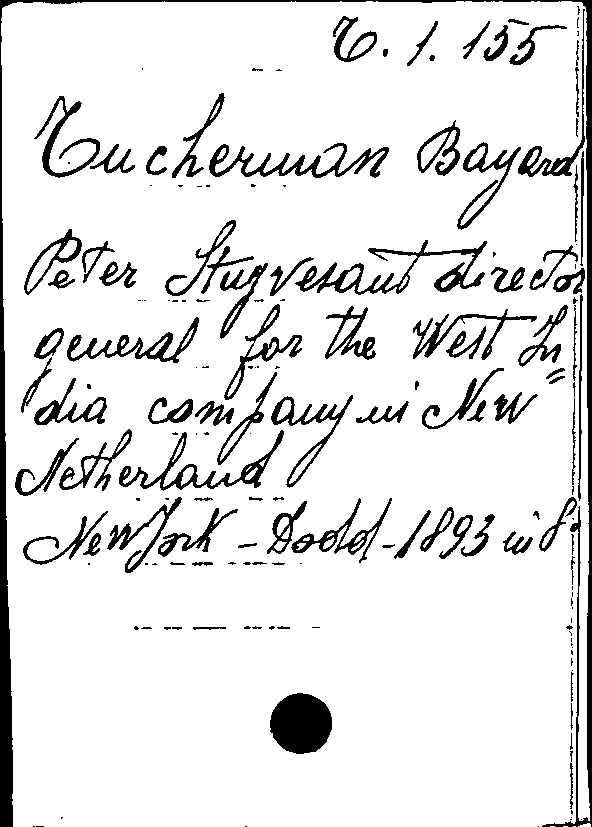 T. 1. 155
Tucherman Bayard
Peter Stuyvesant director
general for the West In=
dia company in New
Netherland
New York - Dodd - 1893 in 8°